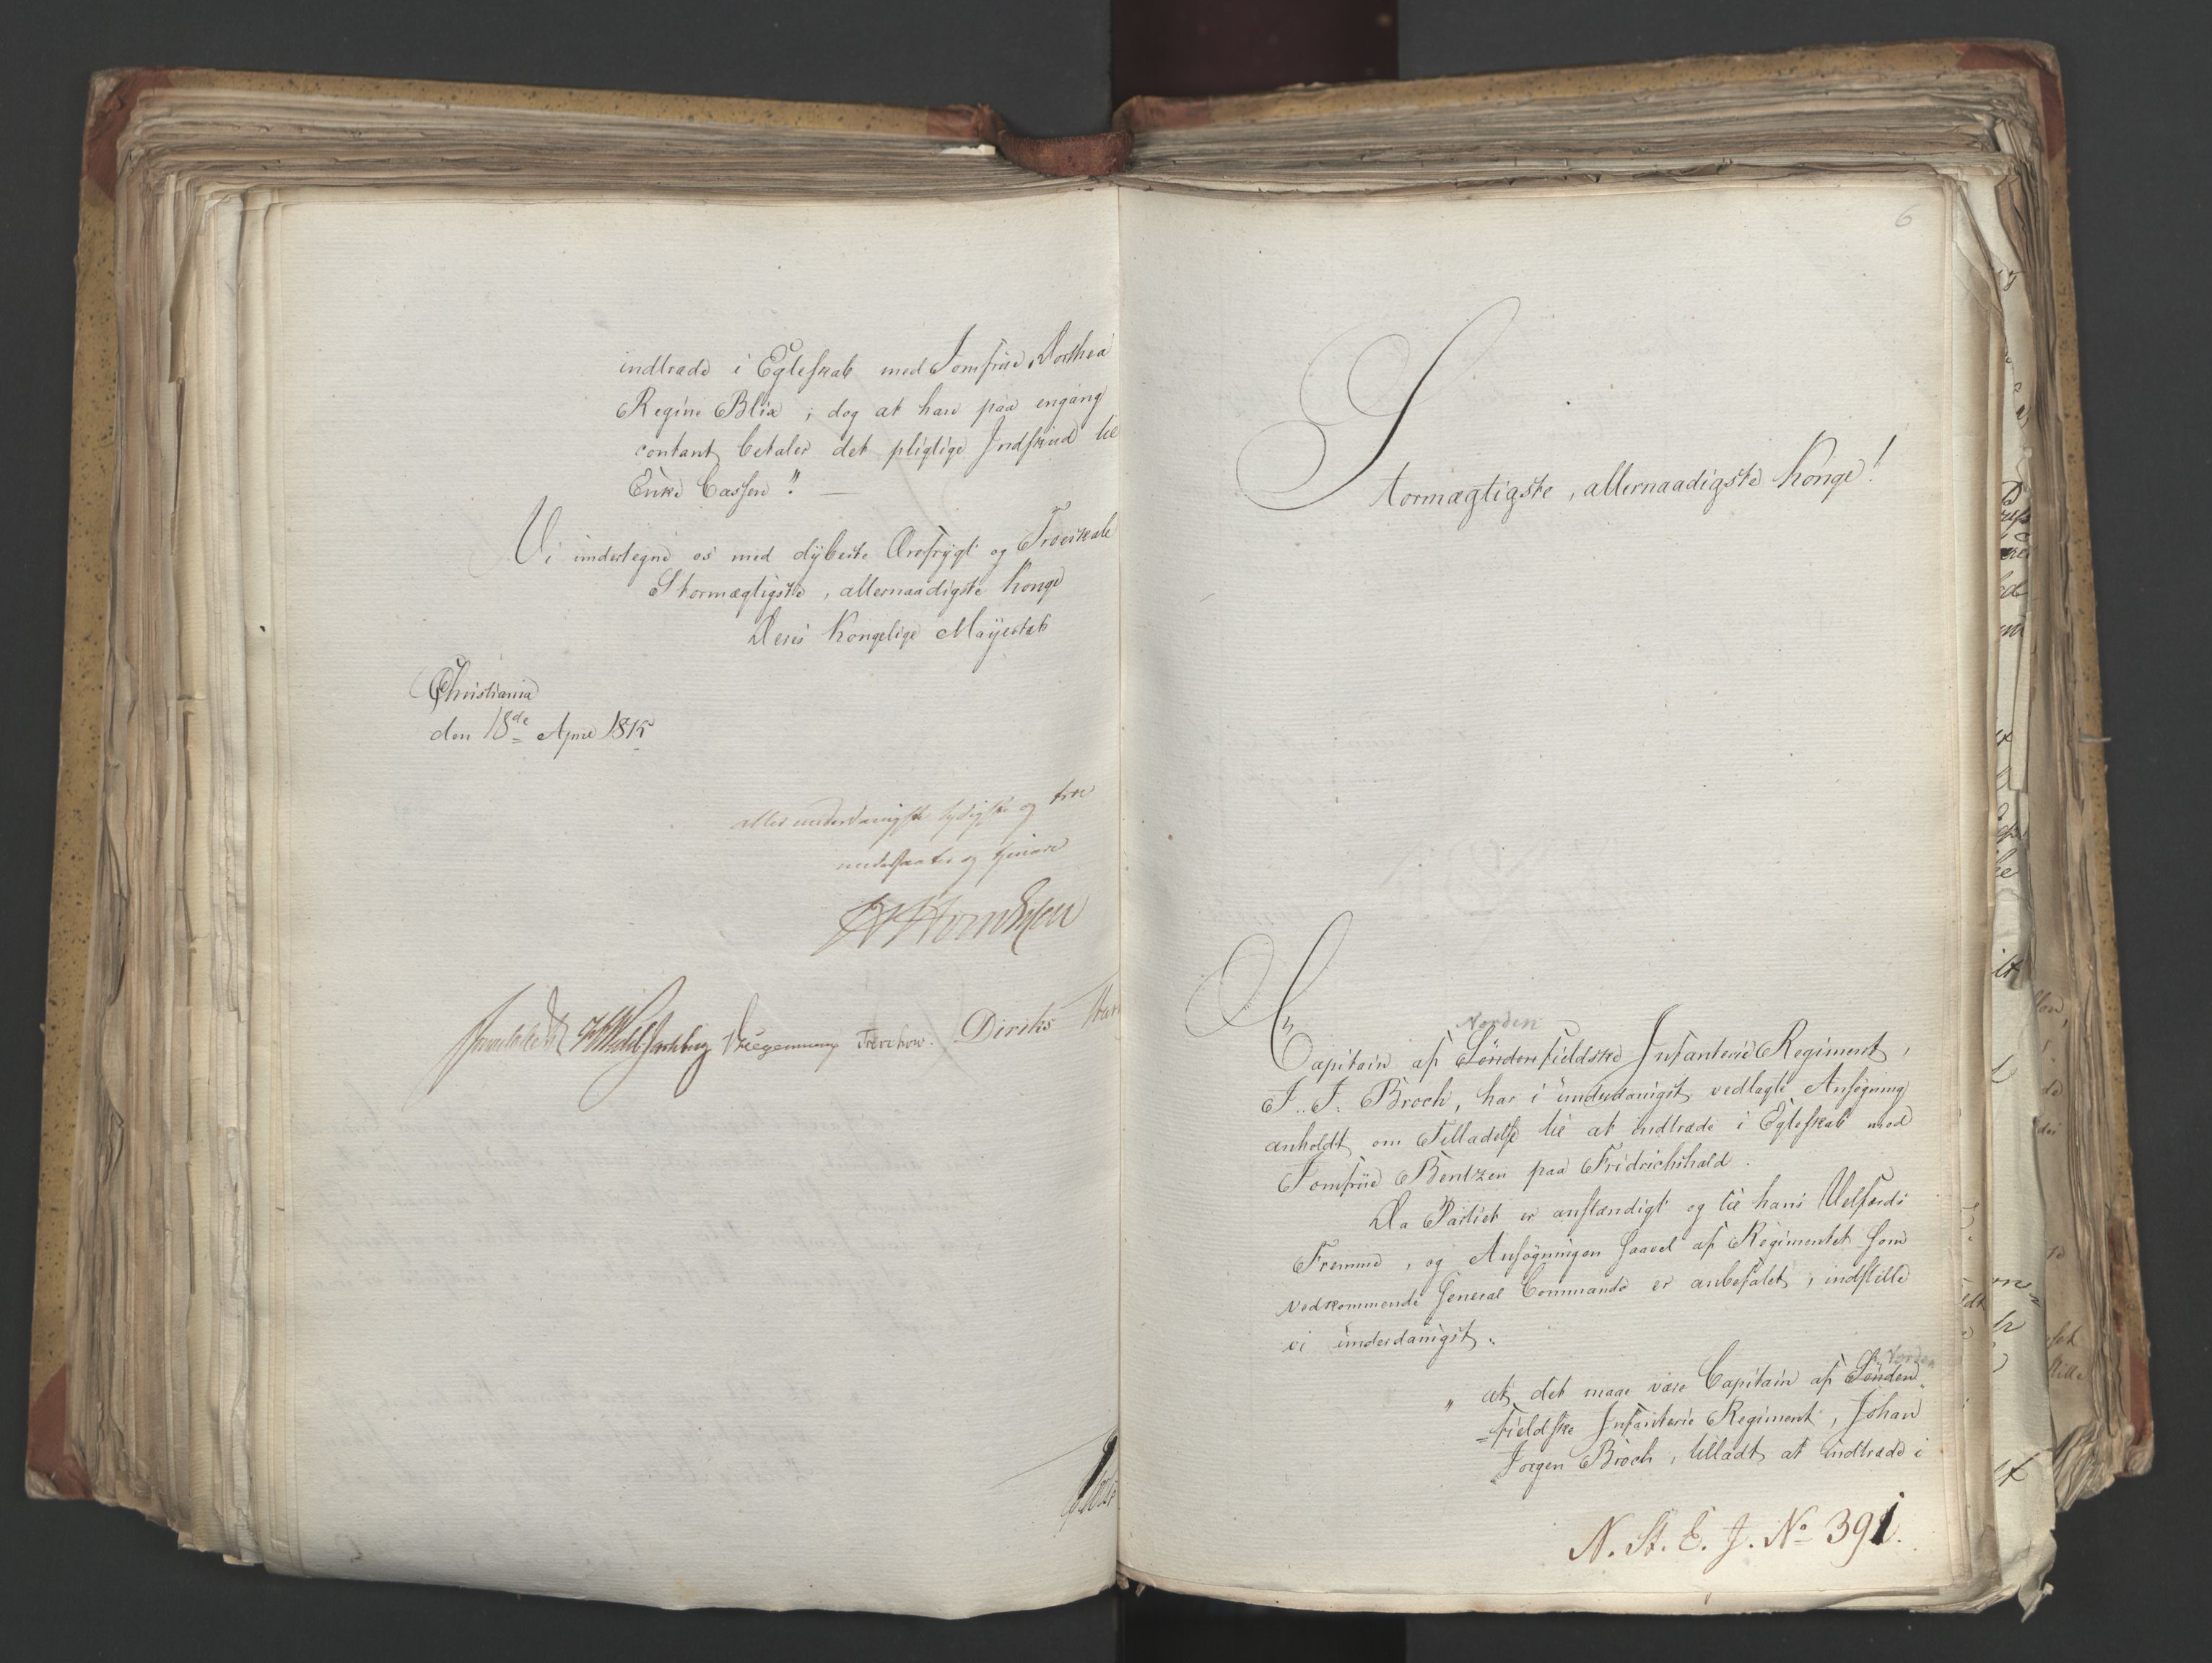 indtræde i Egteskab med Jomfrue Dorthea
Regine Blix ; dog at han paa engang
contant betaler det pligtige Indskud til
Enke Cassen ". —
Vi undertegne os med dybeste Ærefrygt og Troeskab
Stormægtigste, allernaadigste Konge
Deres Kongelige Mayestæts
Christiania
den 18de April 1815
allerunderdanigste lydigste og troe
undersaatter og tjenere
Diriks
Treschow.
6
Stormægtigste, allernaadigste Konge!
Norden
Capitain af Søndenfieldske Infanterie Regiment,
J. J. Broch, har i underdanigst vedlagte Ansøgning
anholdt om Tilladelse til at indtræde i Egteskab med
Jomfrue Bentzen paa Fridrichshald.
Da Partiet er anstændigt og til hans Velfærds
Fremme, og Ansøgningen saavel af Regimentet som
vedkommende General Commando er anbefalet, indstille
vi underdanigst:
Norden
" at det maae være Capitain af Sønden
=fieldske Infanterie Regiment, Johan
Jørgen Broch, tilladt at indtræde i
N. St. E. J. No 391.